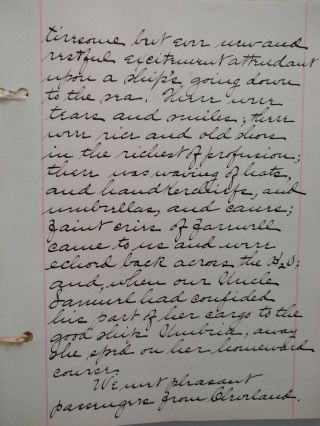 tiresome but ever new and
restful excitement attendant
upon a ship's going down
to the sea. There were
tears and smiles; there
were rice and old shoes
in the richest of profusion;
there was waving of hats,
and handkerchiefs, and
umbrellas, and canes;
faint cries of farewell
came to us and were
echoed back across the H2O;
and, when our Uncle
Samuel had confided
his part of her cargo to the
good ship Umbria, away
she sped on her homeward
course.
We met pleasant
passengers from Cleveland.